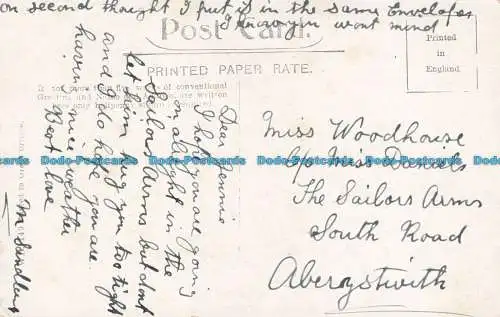 on second thought I put it in the same Envelope
I know you wont mind
Post Card.
PRINTED PAPER RATE.
Printed
in
England
Dear Jennie
I hope you are going
on allright in the
Sailors Arms but dont
let him hug you too tight
and I do hope you are
having nice weather
Best love
M Sandlers
Miss Woodhouse
c/o Miss Daniels
The Sailors Arms
South Road
Aberystwith
Dodo-Postcards Dodo-Postcards Dodo-Postcards Dodo-Postcards Dodo-Postcards